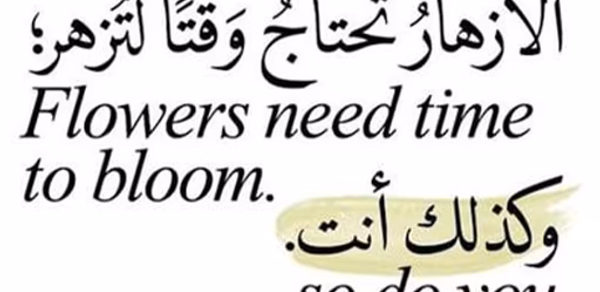 الأزهارُ تحتاجُ وَقتًا لتُزهر؛
Flowers need time
to bloom.
وكذلك أنت.
so do you